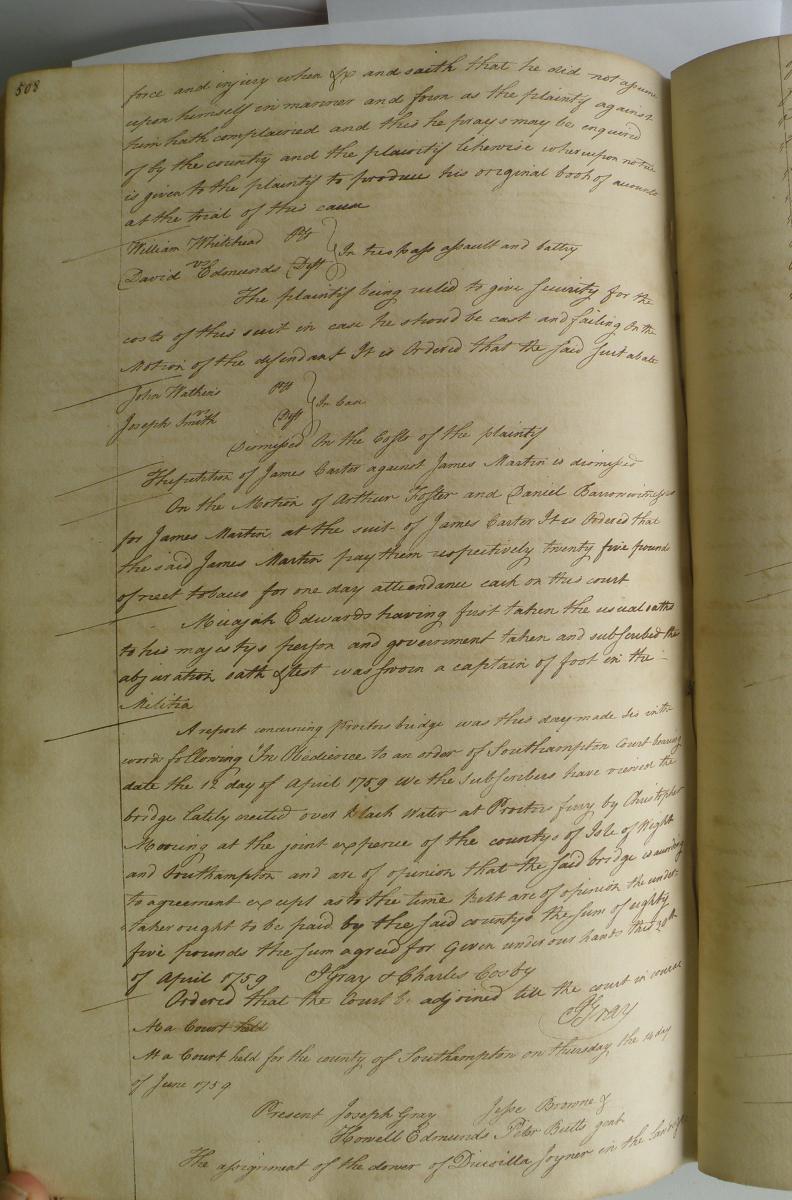 508
force and injury when &c and saith that he did not assume
upon himself in manner and form as the plaintif against
him hath complained and this he prays may be enquired
of by the country and the plaintif likewise whereupon notice
is given to the plaintif to produce his original book of accounts
at the trial of this cause
William Whitehead Plt
vs In trespass assault and battry
David Edmunds Deft
The plaintif being ruled to give security for the
costs of this suit in case he should be cast and failing On the
Motion of the defendant It is Ordered that the said suit abate
John Watkins Plt
vs In Case
Joseph Smith Deft
Dismissed On the Costs of the plaintif
The petition of James Carter against James Martin is dismissed
On the Motion of Arthur Foster and Daniel Barron witnesses
for James Martin at the suit of James Carter It is Ordered that
the said James Martin pay them respectively twenty five pounds
of neet tobacco for one day attendance each on this court
Micajah Edwards having first taken the usual oaths
to his majestys person and government taken and subscribed the
abjuration oath & test was sworn a captain of foot in the
Melitia
A report concerning Proctors bridge was this day made in the
words following In Obedience to an order of Southampton Court bearing
date the 12 day of April 1759 We the Subscribers have viewed the
bridge lately erected over black Water at Proctors ferry by Christopher
Moreing at the joint expence of the countys of Isle of Wight
and Southampton and are of opinion that the said bridge is according
to agreement except as to the time But are of opinion the under-
taker ought to be paid by the said countys the sum of eighty
five pounds the sum agreed for Given under our hands this 20th
of April 1759 J Gray & Charles Cosby
Ordered that the Court be adjoined till the court in course
J Gray
At a Court held
At a Court held for the county of Southampton on thursday the 14 day
of June 1759
Present Joseph Gray Jesse Browne &
Howell Edmunds Peter Butts gent
The assignment of the dower of Drusilla Joyner in the